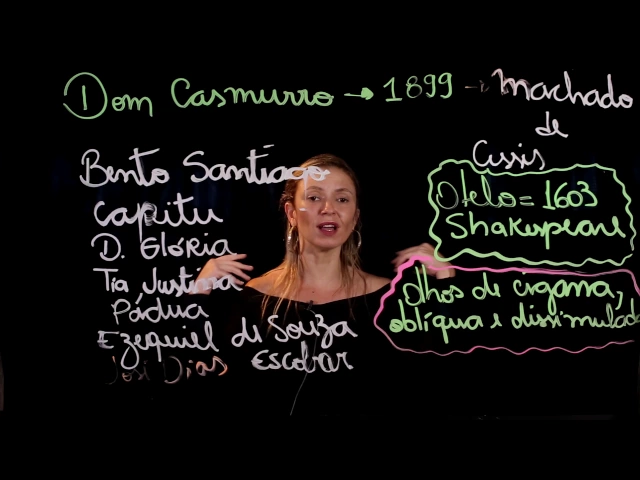 Dom Casmurro → 1899 → Machado
de
Assis
Bento Santiago
Capitu
D. Glória
Tia Justina
Pádua
Ezequiel de Souza
Escobar
José Dias
Otelo = 1603
Shakespeare
Olhos de cigana,
oblíqua e dissimulada